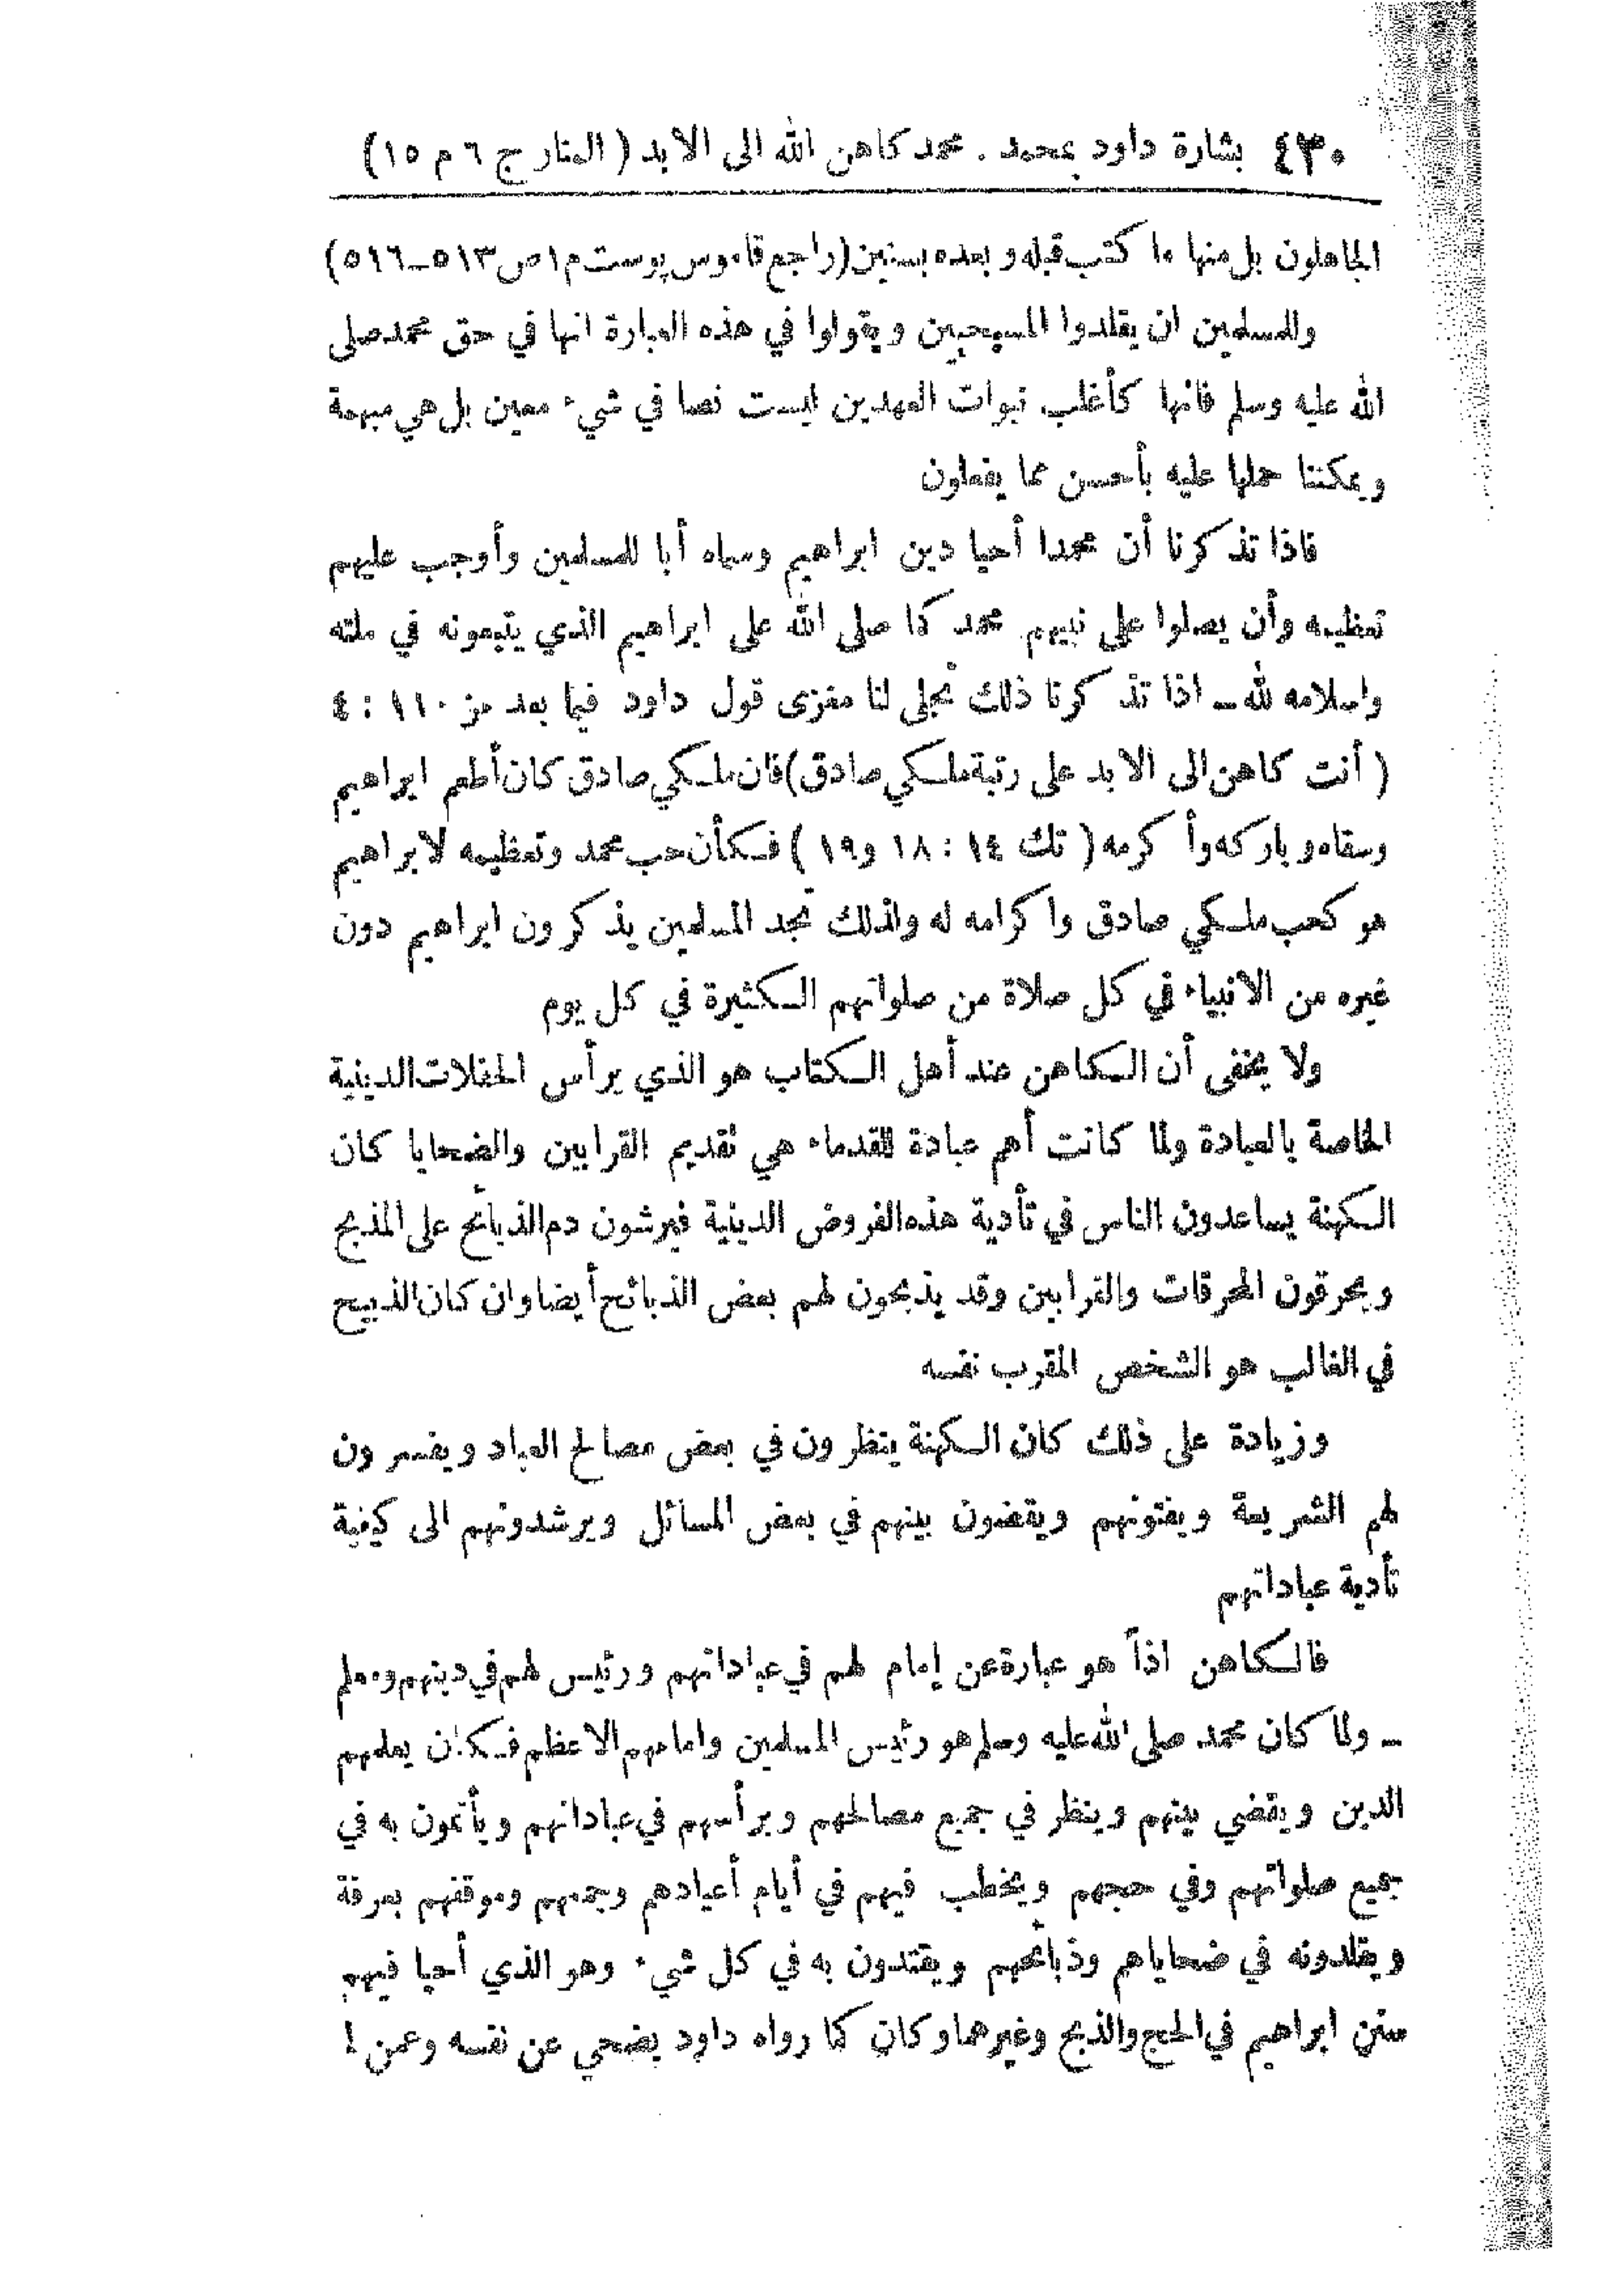 ٤٣٠ بشارة داود بمحمد . محمد كاهن الله الى الابد ( المنار ج ٦ م ١٥ )
الجاهلون بل منها ما كتب قبله وبعده بسنين (راجع قاموس بوست م ١ ص ٥١٣ــ٥١٦)
وللمسلمين ان يقلدوا المسيحيين ويقولوا في هذه العبارة انها في حق محمد صلى
الله عليه وسلم فانها كأغلب نبوات العهدين ليست نصا في شيء معين بل هي مبهمة
ويمكننا حملها عليه بأحسن مما يفعلون
فاذا تذكرنا أن محمدا أحيا دين ابراهيم وسماه أبا للمسلمين وأوجب عليهم
تعظيمه وأن يصلوا على نبيهم محمد كما صلى الله على ابراهيم الذي يتبعونه في ملته
واسلامه لله ــ اذا تذكرنا ذلك تجلى لنا مغزى قول داود فيما بعد مز ١١٠ : ٤
( أنت كاهن الى الابد على رتبة ملكي صادق) فان ملكي صادق كان أطعم ابراهيم
وسقاه وباركه وأكرمه ( تك ١٤ : ١٨ و١٩ ) فكأن حب محمد وتعظيمه لابراهيم
هو كحب ملكي صادق واكرامه له ولذلك تجد المسلمين يذكرون ابراهيم دون
غيره من الانبياء في كل صلاة من صلواتهم الكثيرة في كل يوم
ولا يخفى أن الكاهن عند أهل الكتاب هو الذي يرأس الحفلات الدينية
الخاصة بالعبادة ولما كانت أهم عبادة للقدماء هي تقديم القرابين والضحايا كان
الكهنة يساعدون الناس في تأدية هذه الفروض الدينية فيرشون دم الذبائح على المذبح
ويحرقون المحرقات والقرابين وقد يذبحون لهم بعض الذبائح أيضا وان كان الذبيح
في الغالب هو الشخص المقرب نفسه
وزيادة على ذلك كان الكهنة ينظرون في بعض مصالح العباد ويفسرون
لهم الشريعة ويفتونهم ويقضون بينهم في بعض المسائل ويرشدونهم الى كيفية
تأدية عباداتهم
فالكاهن اذاً هو عبارة عن إمام لهم في عباداتهم ورئيس لهم في دينهم ومعلم
ــ ولما كان محمد صلى الله عليه وسلم هو رئيس المسلمين وامامهم الاعظم فكان يعلمهم
الدين ويقضي بينهم وينظر في جميع مصالحهم ويرأسهم في عباداتهم ويأتمون به في
جميع صلواتهم وفي حجهم ويخطب فيهم في أيام أعيادهم وجمعهم وموقفهم بعرفة
ويقلدونه في ضحاياهم وذبائحهم ويقتدون به في كل شيء وهو الذي أحيا فيهم
سنن ابراهيم في الحج والذبح وغيرهما وكان كما رواه داود يضحي عن نفسه وعمن